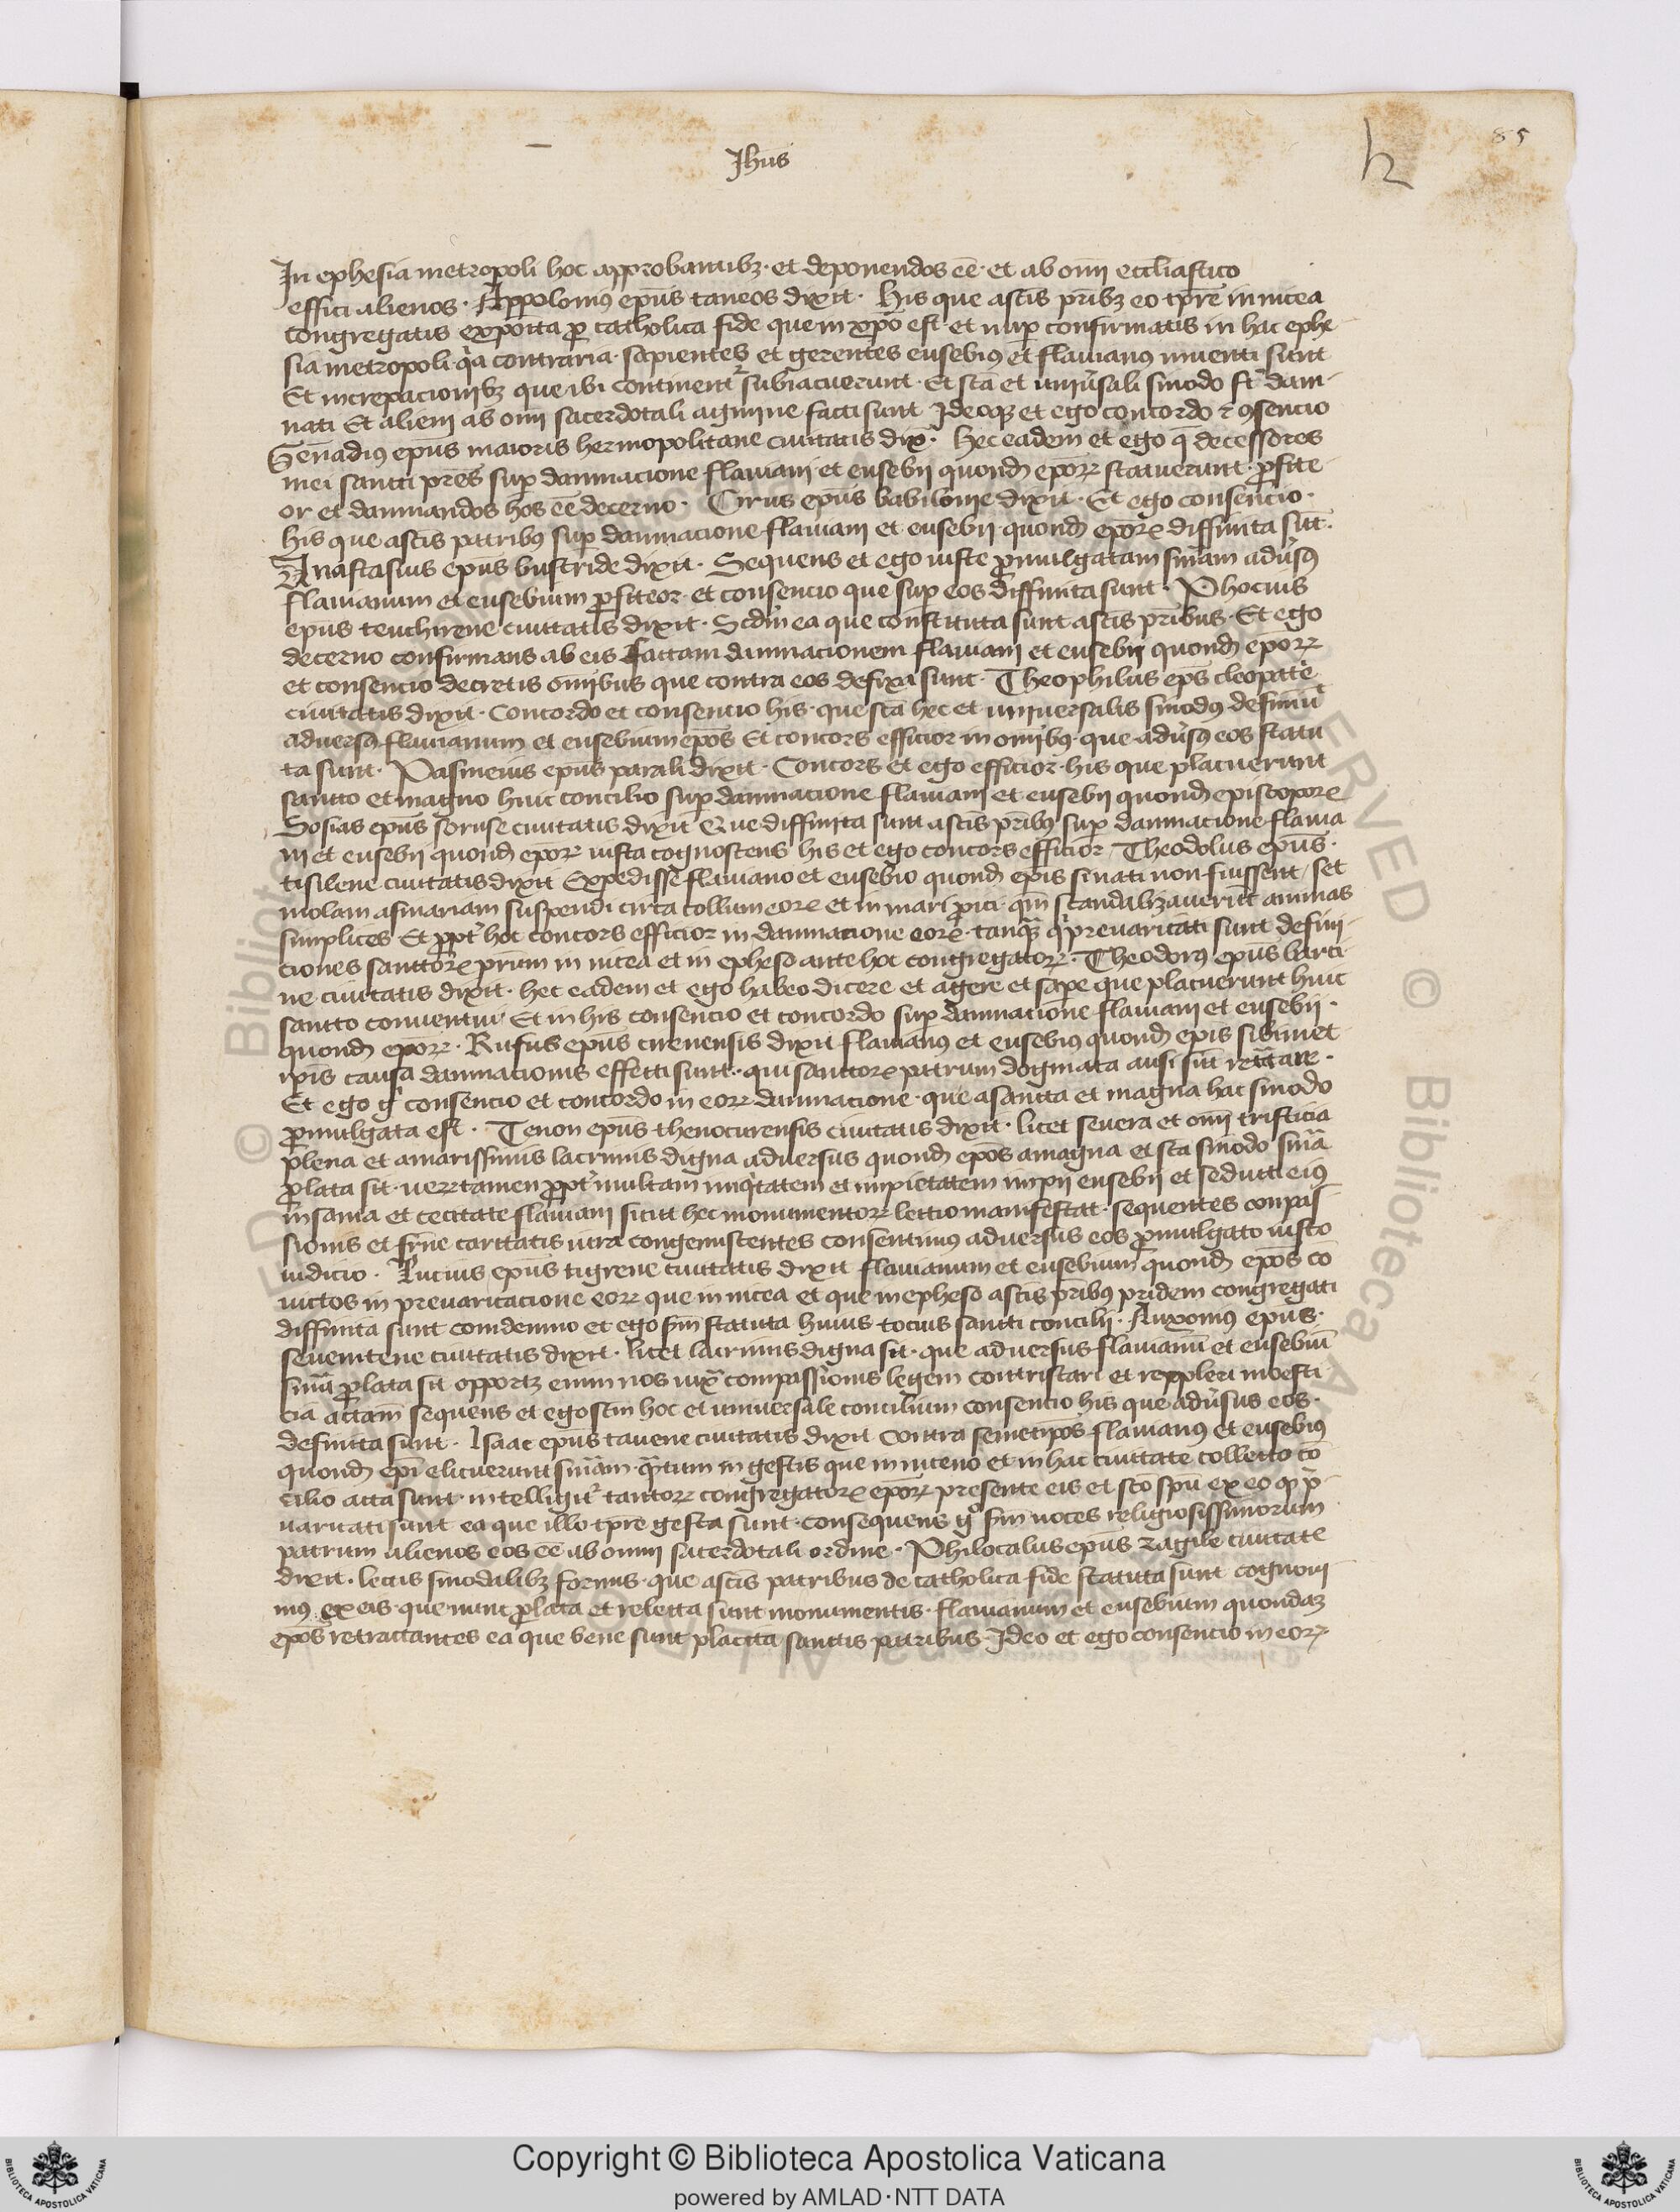 85
Jhūs
h
In ephesia metropoli hoc approbantibꝫ · et deponendos eē · et ab om̄i eccliastico
effici alienos · Appolonius ep̄us taneos dixit · His que a sc̄is pr̄ibꝫ eo tp̄re in nicea
congregatis exposita ꝓ catholica fide que in xp̄o est et nuꝑ confirmatis in hac ephe
sia metropoli · qia contraria · sapientes et gerentes eusebiꝰ et flauianꝰ inuenti sunt
Et increpacionibꝫ que ibi continentr subiacuerunt · Et sc̄a et uniuersali sinodo sr̄ dam-
nati Et alieni ab om̄i sacerdotali agmine facti sunt Ideoqꝫ et ego concordo ⁊ ꝯsencio
Genadiꝰ ep̄us maioris hermopolitane ciuitatis dix̄ · Hec eadem et ego q̄ decessores
mei sancti pr̄es suꝑ damnacione flauiani et eusebij quondā ep̄oꝝ statuerunt · ꝓfite
or et damnandos hos eē decerno · Cirus ep̄us babilonie dixit · Et ego consencio ·
his que a sc̄is patribꝰ suꝑ damnacione flauiani et eusebij quondā ep̄oꝝ diffinita sūt ·
Anastasius ep̄us bustride dixit · Sequens et ego iuste ꝓmulgatam sn̄iam adu̓sꝰ
flauianum et eusebium ꝓfiteor · et consencio que suꝑ eos diffinita sunt · Phocius
ep̄us teuchirene ciuitatis dixit · Scdm̄ ea que constituta sunt a sc̄is pr̄ibus · Et ego
decerno confirmans ab eis factam damnacionem flauiani et eusebij quondā ep̄oꝝ
et consencio decretis om̄ibus que contra eos defixa sunt · Theophilus ep̄s cleopate
ciuitatis dixit · Concordo et consencio his · que sc̄a hec et uniuersalis sinodꝰ definiūt
aduersꝰ flauianum et eusebium ep̄os Et concors efficior in om̄ibꝰ · que adu̓sꝰ eos statu
ta sunt · Pasmeius ep̄us parali dixit · Concors et ego efficior · his que placuerunt
sancto et magno huic concilio suꝑ damnacione flauiani et eusebij quondā episcopoꝝ
Sosias ep̄us soruse ciuitatis dixit Que diffinita sunt a sc̄is pr̄ibꝰ suꝑ damnacione flauia
ni et eusebij quondā ep̄oꝝ iusta cognoscens his et ego concors efficior Theodolus ep̄us ·
tisilene ciuitatis dixit Expedisse flauiano et eusebio quondā ep̄is si nati non fuissent / set
molam asinariam suspendi circa collum eoꝝ et in mari ꝓici · qm̄ scandalizauerūt animas
simplices Et ꝓpt̓ hoc concors efficior in damnacione eoꝝ · tanqꝫ q̓ preuaricati sunt defini-
ciones sanctoꝝ pr̄um in nicea et in epheso ante hoc congregatoꝝ · Theodorꝰ ep̄us barci
ne ciuitatis dixit · hec eadem et ego habeo dicere et agere et sape que placuerunt huic
sancto conuentui Et in his consencio et concordo suꝑ damnacione flauiani et eusebij ·
quondā ep̄oꝝ · Rufus ep̄us cirenensis dixit flauianꝰ et eusebiꝰ quondā ep̄is sibimet
ip̄is causa damnacionis effecti sunt · qui sanctoꝝ patrum dogmata ausi sūt ret̄tare ·
Et ego g̓ consencio et concordo in eoꝝ damnacione · que a sancta et magna hac sinodo
ꝓmulgata est · Tenon ep̄us thenocurensis ciuitatis dixit · licet seuera et om̄i tristicia
plena et amarissimis lacrimis digna aduersus quondā ep̄os a magna et sc̄a sinodo sn̄ia
ꝓlata sit · ueꝝtamen ꝓpt̓ multam iniq̓tatem et impietatem impij eusebij et seducti eiꝰ
insania et cecitate flauiani sicut hec monumentoꝝ lectio manifestat · sequentes conpas
sionis et fr̄ne caritatis iura congemiscentes consentimꝰ aduersus eos ꝓmulgato iusto
iudicio · Lucius ep̄us tigrene ciuitatis dixit flauianum et eusebium quondā ep̄os cō
uictos in preuaricacione eoꝝ que in nicea et que in epheso a sc̄is pr̄ibꝰ pridem congregati
diffinita sunt condemno et ego sm̄ statuta huius tocius sancti concilij · Auxoniꝰ ep̄us ·
seuenitene ciuitatis dixit · licet lacrimis digna sit · que aduersus flauianū et eusebiū
sn̄ia ꝓlata sit opportꝫ enim nos iuxᵃ compassionis legem contristari et reppleri moesti
cia attam̄ sequens et ego sc̄m hoc et uniuersale concilium consencio his que adu̓sus eos ·
definita sunt · Isaac ep̄us tauene ciuitatis dixit contra semetip̄os flauianꝰ et eusebiꝰ
quondā ep̄i elicuerunt sn̄iam · q̄ntum in gestis que in niceno et in hac ciuitate collecto cō
cilio acta sunt · intelligit̓ tantoꝝ congregatoꝝ ep̄oꝝ presente eis et sc̄o sp̄u ex eo qꝫ p̄-
uaricati sunt ea que illo tp̄re gesta sunt · consequens gͦ sm̄ uoces religiosissimorum
patrum alienos eos eē ab omni sacerdotali ordine · Philocalus ep̄us zagile ciuitate
dixit · lectis sinodalibꝫ formis · que a sc̄is patribus de catholica fide statuta sunt cognoui
mꝰ ex eis · que nunc ꝓlata et relecta sunt monumentis · flauianum et eusebium quondaꝫ
ep̄os retractantes ea que bene sunt placita sanctis patribus · Ideo et ego consencio in eoꝝ
Copyright © Biblioteca Apostolica Vaticana
powered by AMLAD·NTT DATA